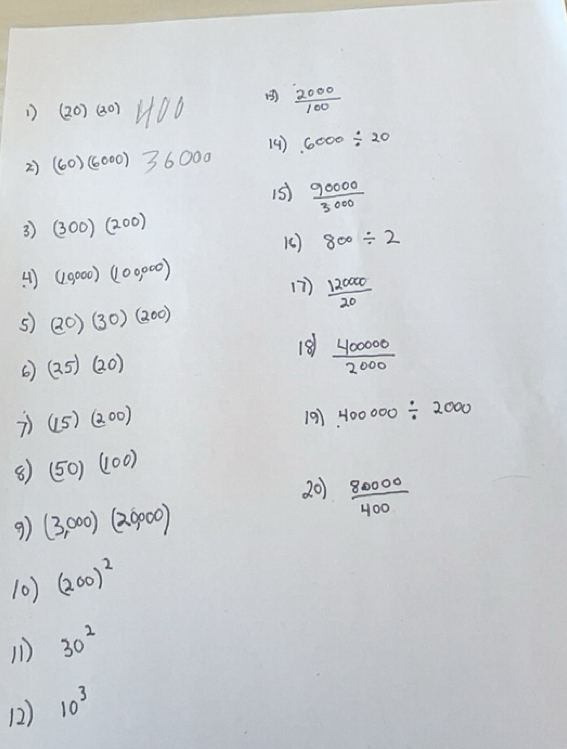 1) (20) (20) 400
2) (60) (6000) 36000
3) (300) (200)
4) (10,000) (100,000)
5) (20) (30) (200)
6) (25) (20)
7) (15) (200)
8) (50) (100)
9) (3,000) (20,000)
10) (200)²
11) 30²
12) 10³
13) 2000
100
14) 6000 ÷ 20
15) 90000
3000
16) 800 ÷ 2
17) 120000
20
18) 400000
2000
19) 400 000 ÷ 2000
20) 80000
400